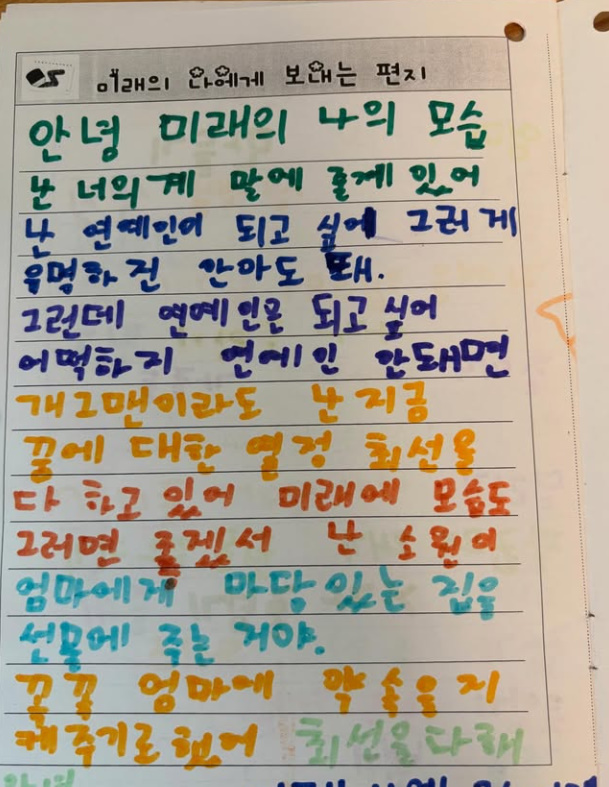 미래의 나에게 보내는 편지
안녕 미래의 나의 모습
난 너의계 말에 줄게 있어
난 연예인이 되고 싶에 그러게
유명하진 안아도 돼.
그런데 연예인은 되고 싶어
어떡하지 연에인 안돼면
개그맨이라도 난 지금
꿀에 대한 열정 최선을
다 하고 있어 미래에 모습도
그러면 좋겠서 난 소원이
엄마에게 마당 있는 집을
선물에 주는 거야.
꼳꼳 엄마에 약속을 지
켜주기로 했어 최선을 다해